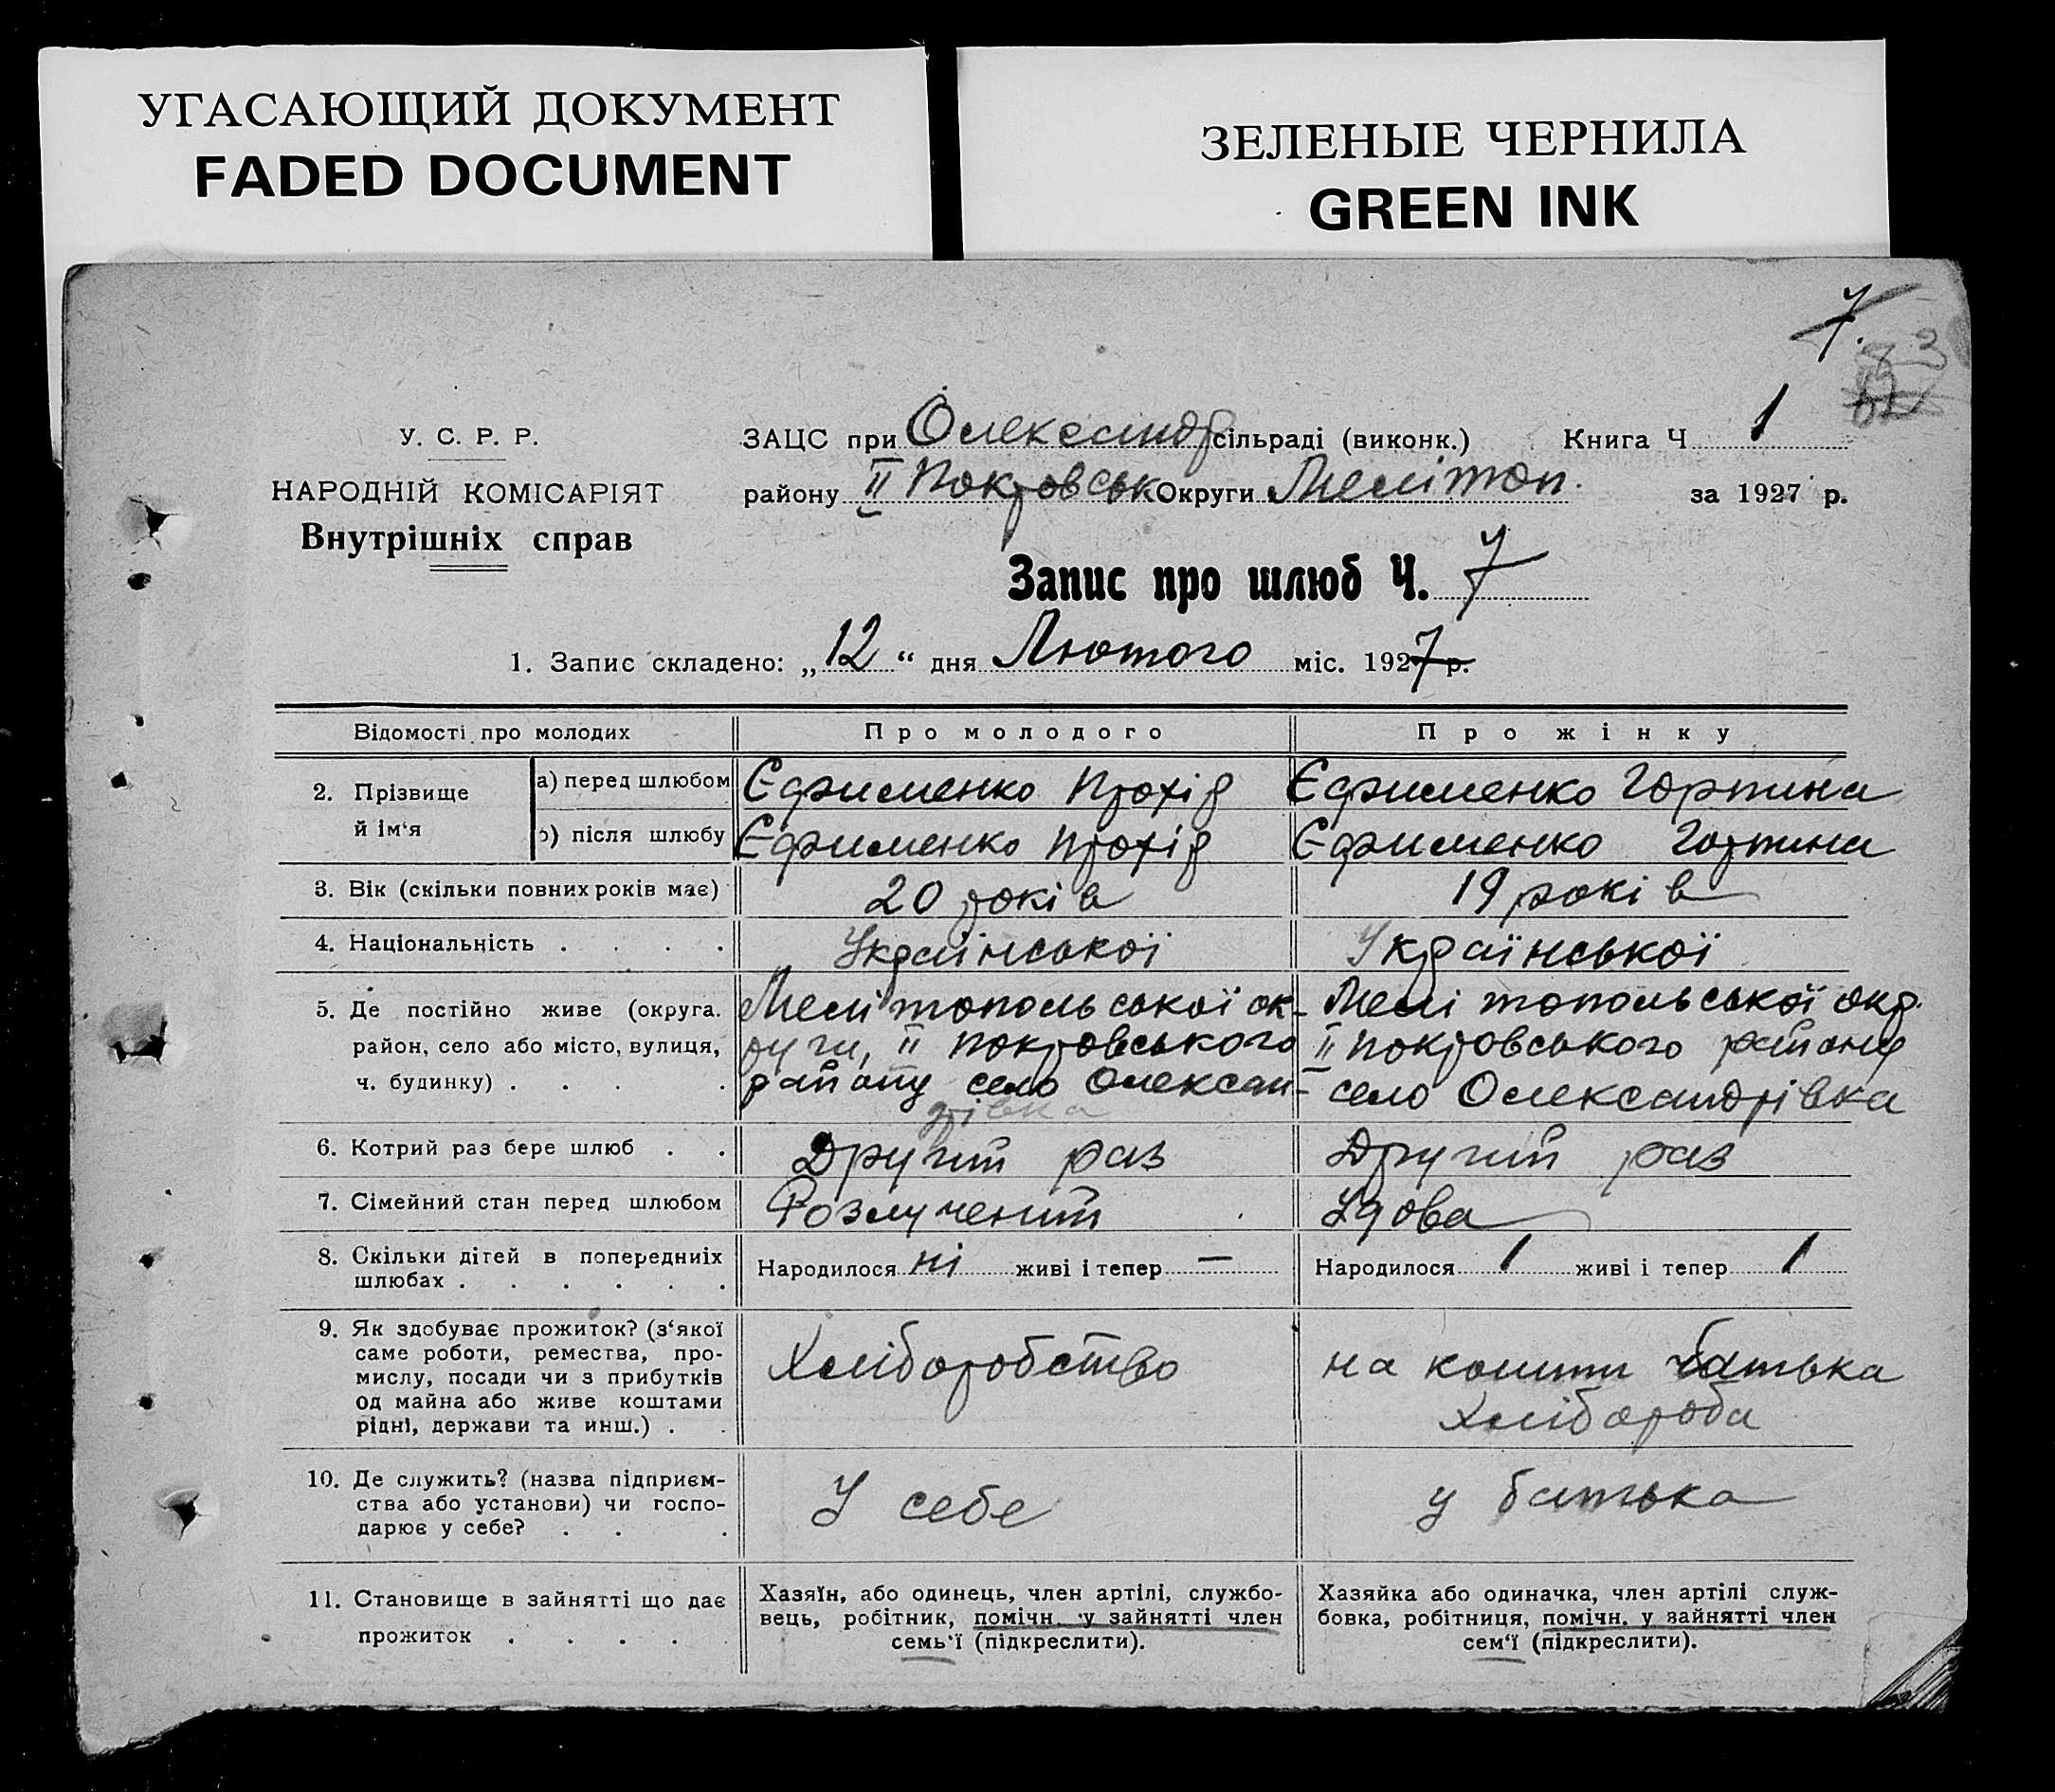 УГАСАЮЩИЙ ДОКУМЕНТ
FADED DOCUMENT
ЗЕЛЕНЫЕ ЧЕРНИЛА
GREEN INK
7.
83
У. С. Р. Р.
НАРОДНІЙ КОМІСАРІЯТ
Внутрішніх справ
ЗАЦС при Олександр сільраді (виконк.) Книга Ч 1
району ІІ Покровськ Округи Мелітоп. за 1927 р.
Запис про шлюб Ч. 7
1. Запис складено: „12“ дня Лютого міс. 1927 р.
Відомості про молодих Про молодого Про жінку
2. Прізвище й ім‘я
а) перед шлюбом Єфименко Прохід Єфименко Горпина
б) після шлюбу Єфименко Прохід Єфименко Горпина
3. Вік (скільки повних років має) 20 років 19 років
4. Національність . . . . Української Української
5. Де постійно живе (округа. район, село або місто, вулиця, ч. будинку) . . . .
Мелітопольської ок-
руги, ІІ Покровського
району село Олексан-
дрівка
Мелітопольської окр.
ІІ Покровського району
село Олександрівка
6. Котрий раз бере шлюб . . Другий раз Другий раз
7. Сімейний стан перед шлюбом Розлучений Удова
8. Скільки дітей в попередніх шлюбах . . . . . .
Народилося ні живі і тепер —
Народилося 1 живі і тепер 1
9. Як здобуває прожиток? (з‘якої
саме роботи, ремества, про-
мислу, посади чи з прибутків
од майна або живе коштами
рідні, держави та инш.) . .
Хліборобство
на кошти батька
Хлібороба
10. Де служить? (назва підприєм-
ства або установи) чи госпо-
дарює у себе? . . .
У себе
у батька
11. Становище в зайнятті що дає
прожиток . . . .
Хазяїн, або одинець, член артілі, службо-
вець, робітник, помічн. у зайнятті член
семь‘ї (підкреслити).
Хазяйка або одиначка, член артілі служ-
бовка, робітниця, помічн. у зайнятті член
сем‘ї (підкреслити).